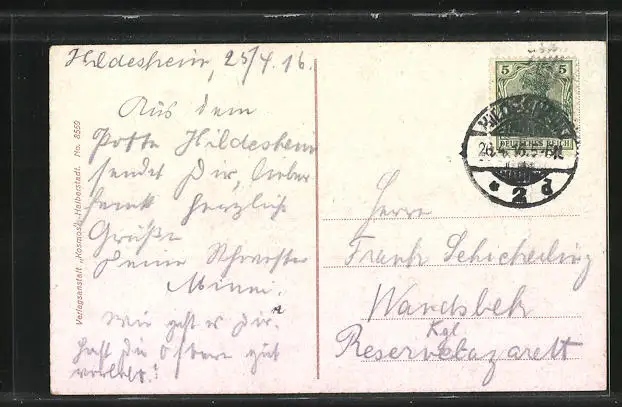 Hildesheim, 25/4.16.
Aus dem
Hildesheim
sendet Dir, lieber
Frank herzliche
Grüße
Deine Schwester
Minni.
Wie geht es Dir.
Hast Du Ostern gut
verlebt?
Verlagsanstalt „Kosmos“, Halberstadt. No. 8559
5 5
DEUTSCHES REICH
HILDESHEIM
26.4.16.
* 2 d
Herrn
Frank
Wandsbek
Kgl
Reservelazarett